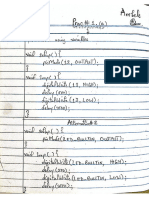 using variables
void setup() {
pinMode(13, OUTPUT);
}
void loop() {
digitalWrite(13, HIGH);
delay(500);
digitalWrite(13, LOW);
delay(500);
}
void setup() {
pinMode(LED_BUILTIN, OUTPUT);
}
void loop() {
digitalWrite(LED_BUILTIN, HIGH);
delay(500);
digitalWrite(LED_BUILTIN, LOW);
delay(500);